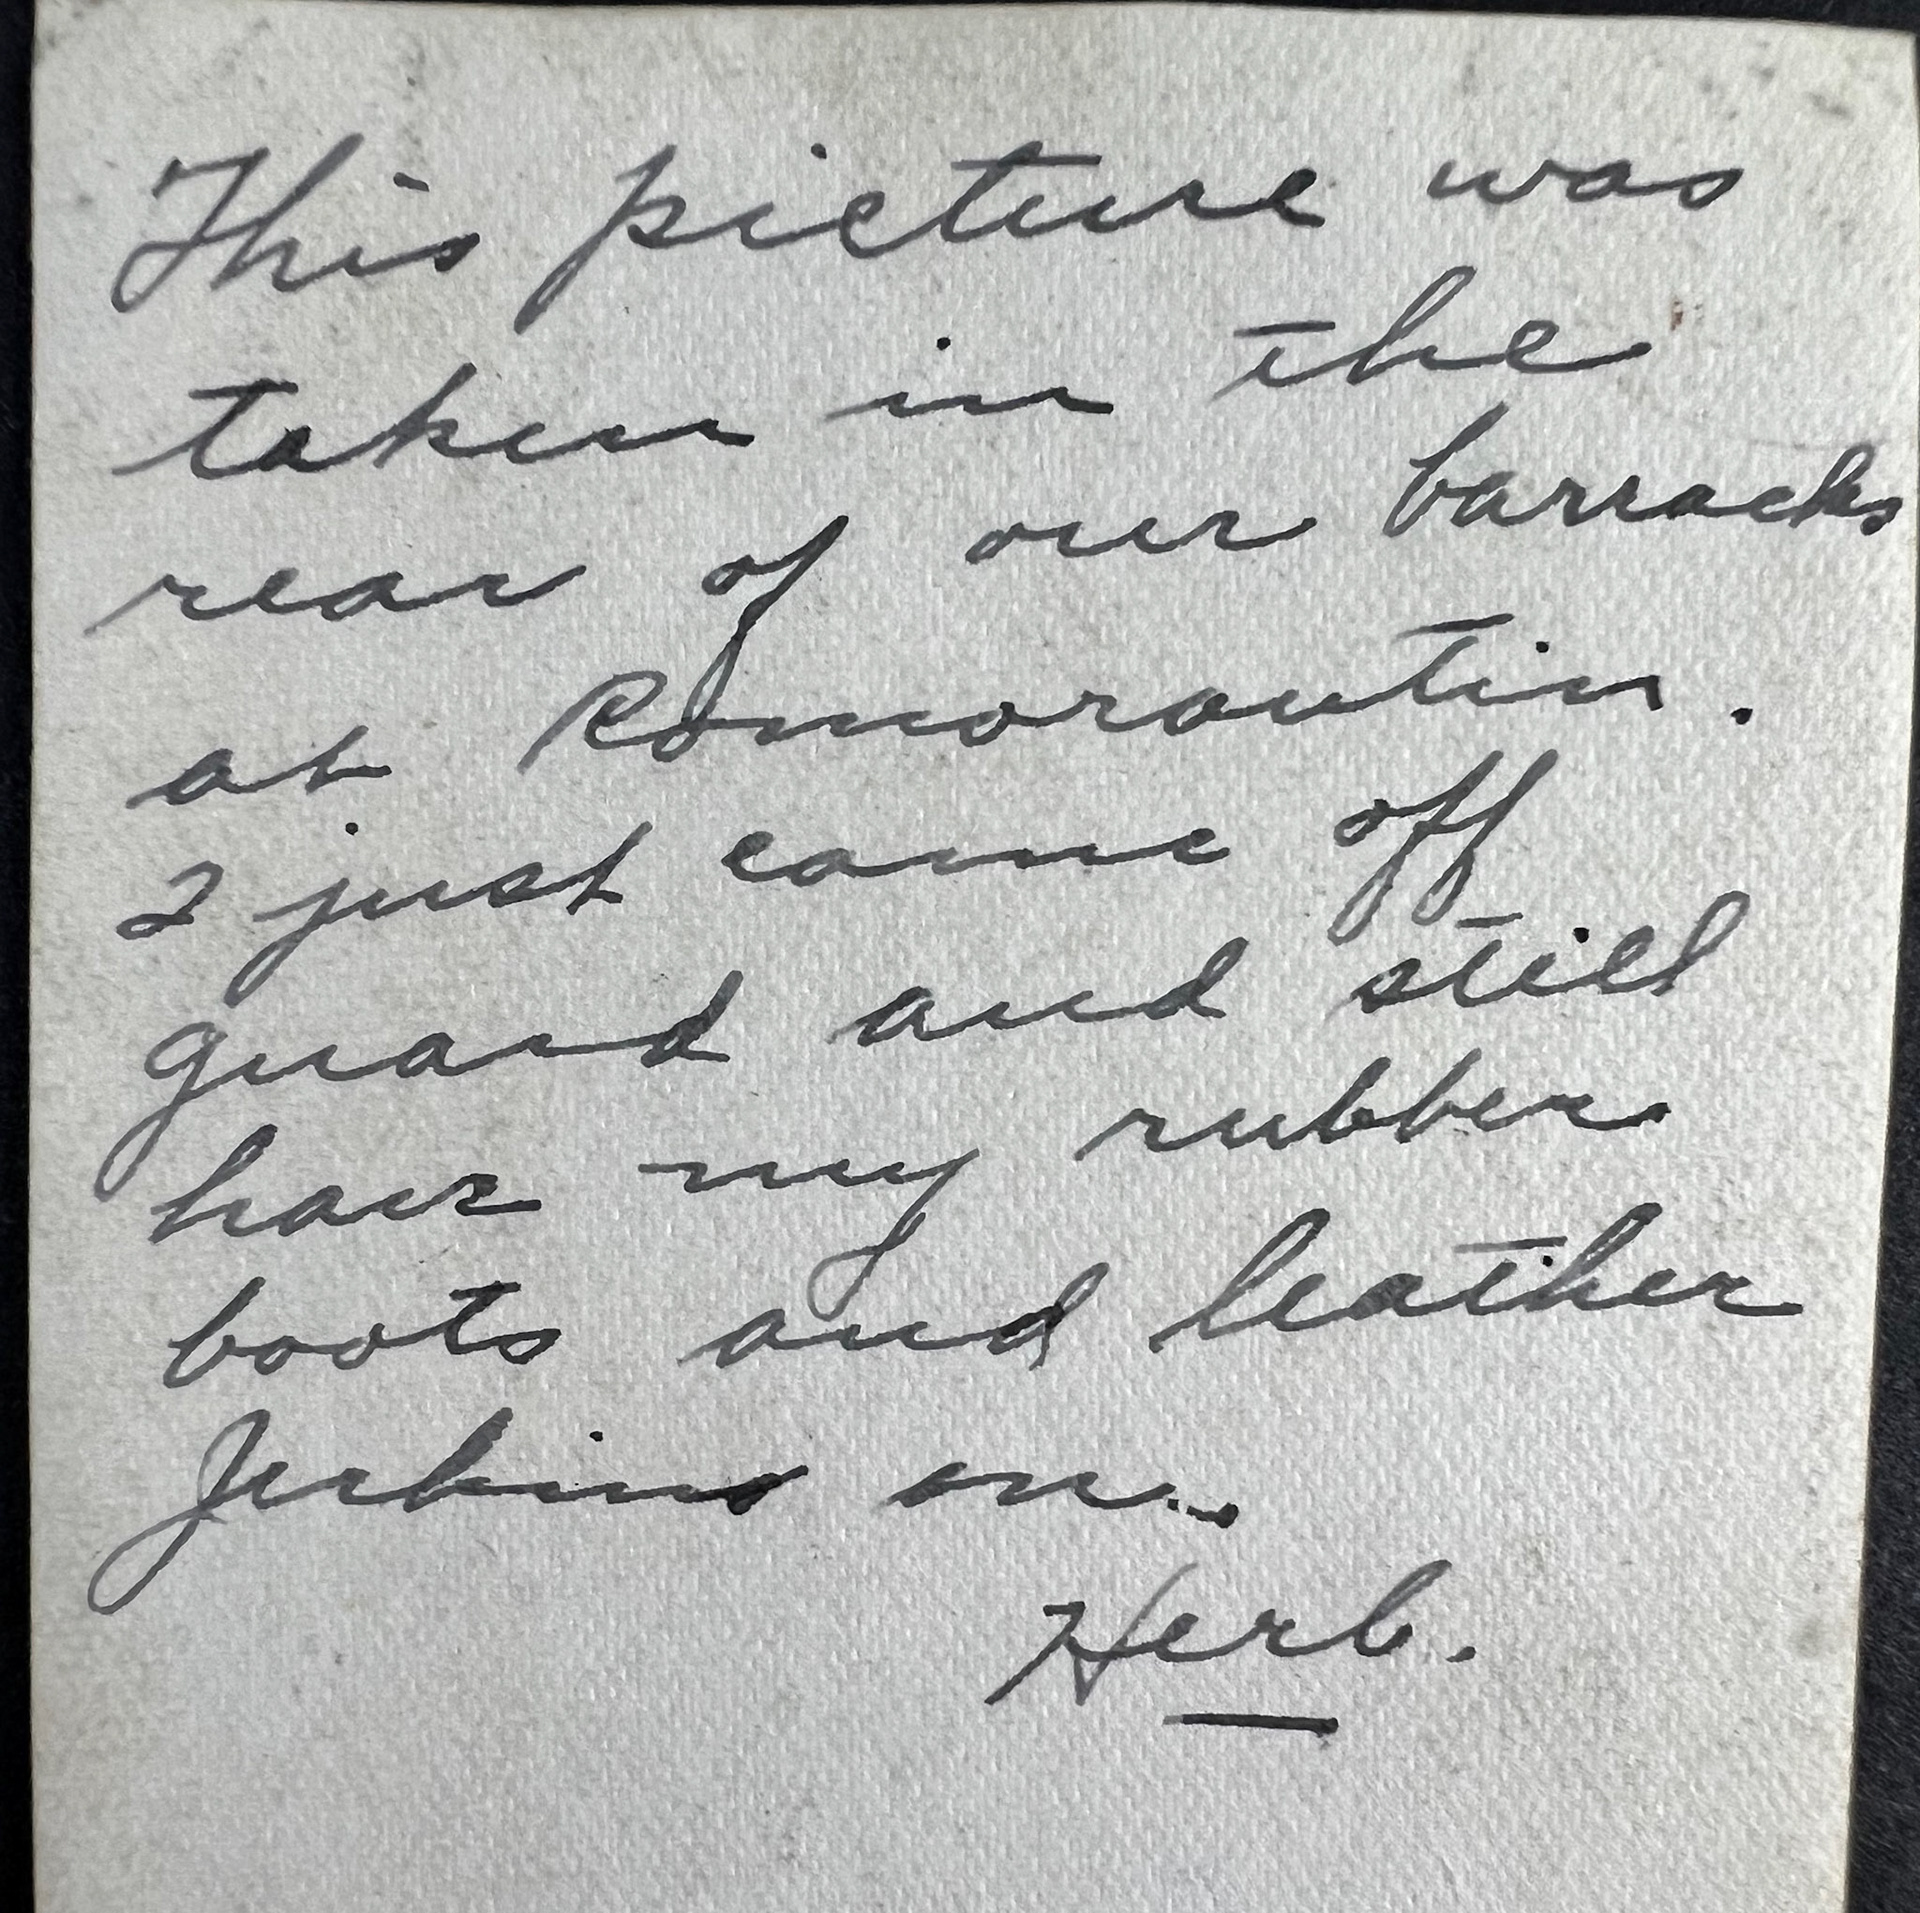 This picture was
taken in the
rear of our barracks
at Romorantin.
I just came off
guard and still
have my rubber
boots and leather
Jerkins on.
Herb.